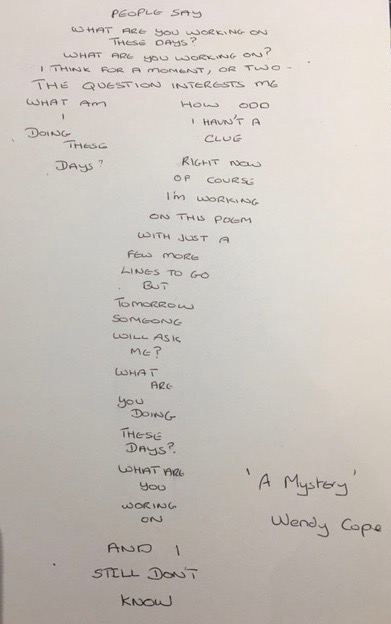 PEOPLE SAY
WHAT ARE YOU WORKING ON
THESE DAYS?
WHAT ARE YOU WORKING ON?
I THINK FOR A MOMENT, OR TWO -
THE QUESTION INTERESTS ME
WHAT AM
I
DOING
THESE
DAYS?
HOW ODD
I HAVN'T A
CLUE
RIGHT NOW
OF COURSE
I'm WORKING
ON THIS POEM
WITH JUST A
FEW MORE
LINES TO GO
BUT
TOMORROW
SOMEONG
WILL ASK
ME?
WHAT
ARE
YOU
DOING
THESE
DAYS?
WHAT ARE
YOU
WORING
ON
AND I
STILL DON'T
KNOW
'A Mystery'
Wendy Cope